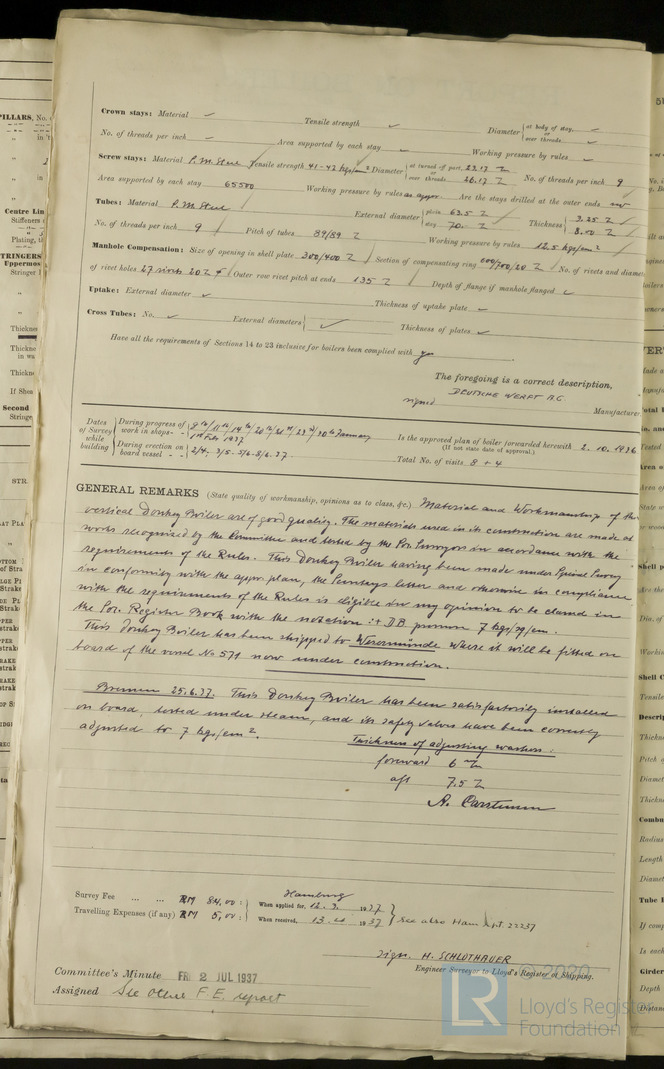 Crown stays: Material ✓ Tensile strength ✓ Diameter { at body of stay, ✓ or over threads ✓
No. of threads per inch ✓ Area supported by each stay ✓ Working pressure by rules ✓
Screw stays: Material P.M. Steel Tensile strength 41-47 kgs/cm² Diameter { at turned off part, 23.17 or over threads 26.17 No. of threads per inch 9
Area supported by each stay 65500 Working pressure by rules as appr Are the stays drilled at the outer ends no
Tubes: Material P.M. Steel External diameter { plain 63.5 stay 70. Thickness { 3.25 8.00
No. of threads per inch 9 Pitch of tubes 89/89 Working pressure by rules 12.5 kgs/cm²
Manhole Compensation: Size of opening in shell plate 300/400 Section of compensating ring 600/700/20 No. of rivets and diamet
of rivet holes 27 rivets 20 Outer row rivet pitch at ends 135 Depth of flange if manhole flanged ✓
Uptake: External diameter ✓ Thickness of uptake plate ✓
Cross Tubes: No. ✓ External diameters { ✓ Thickness of plates ✓
Have all the requirements of Sections 14 to 23 inclusive for boilers been complied with yes
The foregoing is a correct description,
signed DEUTSCHE WERFT A.G. Manufacturer
Dates of Survey while building
During progress of work in shops - - 9th/11th/14th/20th/21st/23rd/30th January 1st Feb 1937
During erection on board vessel - - 2/4. 3/5. 5/6. 8/6. 37.
Is the approved plan of boiler forwarded herewith 2.10.1936
(If not state date of approval.)
Total No. of visits 8 + 4
GENERAL REMARKS (State quality of workmanship, opinions as to class, &c.) Material and Workmanship of the
vertical Donkey Boiler are of good quality. The materials used in its construction are made at
works recognized by the Committee and tested by the Soc. Surveyors in accordance with the
requirements of the Rules. This Donkey Boiler having been made under Special Survey
in conformity with the appr. plan, the Secretarys letter and otherwise in compliance
with the requirements of the Rules is eligible in my opinion to be classed in
the Soc. Register Book with the notation: D.B. pressure 7 kgs/sq/cm.
This Donkey Boiler has been shipped to Wesermünde where it will be fitted on
board of the vessel No 571 now under construction.
Bremen 25.6.37. This Donkey Boiler has been satisfactorily installed
on board, tested under steam, and its safety valves have been correctly
adjusted to 7 kgs/cm².
Thickness of adjusting washers:
forward 6
aft 7.5
A. Carstensen
Survey Fee ... ... RM 84,00 :
Travelling Expenses (if any) RM 5,00 :
Hamburg
When applied for, 12. 3. 1937
When received, 13. 1937
See also Ham Rpt. 22237
sign. H. SCHLOTHAUER
Engineer Surveyor to Lloyd's Register of Shipping.
Committee's Minute FRI 2 JUL 1937
Assigned See other F.E. report
© 2020
LR
Lloyd's Register
Foundation
PILLARS, No.
Centre Lin
Stiffeners
Plating, t
STRINGERS
Uppermos
Stringer
Thickne
Thickne
in wa
Thickn
If Shea
Second
Stringe
STR.